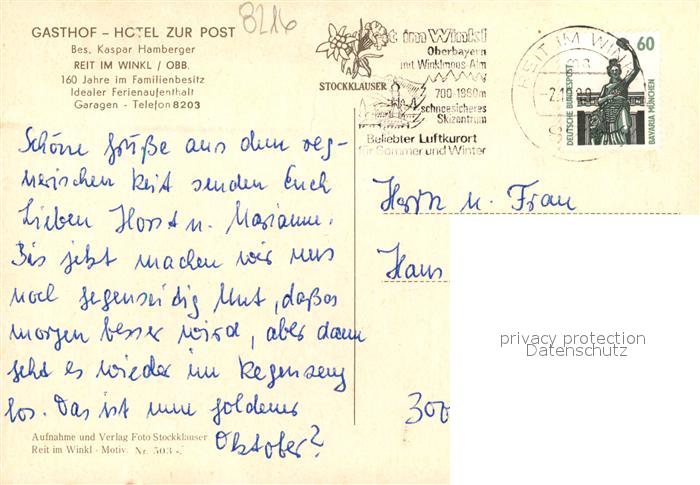 GASTHOF – HOTEL ZUR POST
Bes. Kaspar Hamberger
REIT IM WINKL / OBB.
160 Jahre im Familienbesitz
Idealer Ferienaufenthalt
Garagen - Telefon 8203
8216
STOCKKLAUSER
Reit im Winkl
Oberbayern
mit Winklmoos-Alm
700-1860m
schneesicheres
Skizentrum
Beliebter Luftkurort
für Sommer und Winter
REIT IM WINKL
60
DEUTSCHE BUNDESPOST
BAVARIA MÜNCHEN
Schöne Grüße aus dem reg-
nerischen Reit senden Euch
Lieben Horst u. Marianne.
Bis jetzt machen wir uns
noch gegenseitig Mut, daß es
morgen besser wird, aber dann
geht es wieder im Regenzeug
los. Das ist nun goldener
Oktober?
Herrn u. Frau
Hans
300
privacy protection
Datenschutz
Aufnahme und Verlag Foto Stockklauser
Reit im Winkl - Motiv. Nr. 503